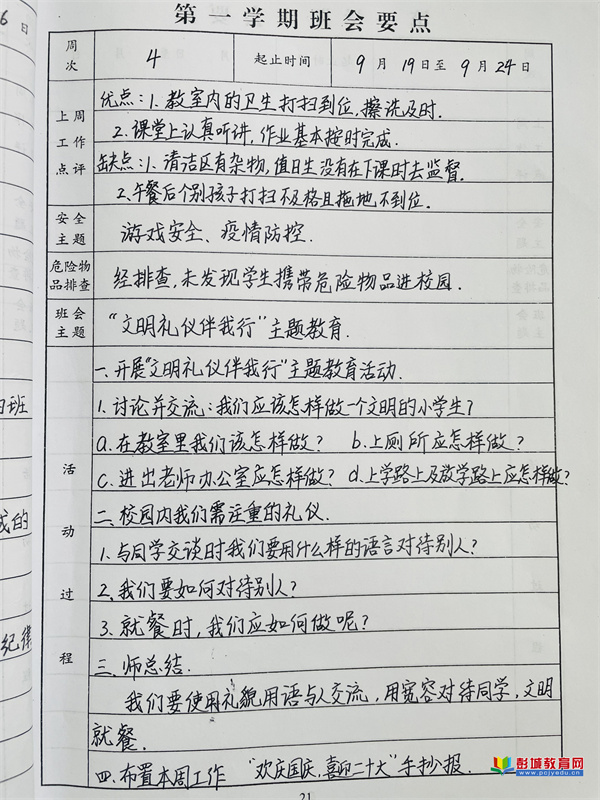 第一学期班会要点
周次 4 起止时间 9月19日至9月24日
上周工作点评
优点:1.教室内的卫生打扫到位,擦洗及时.
2.课堂上认真听讲,作业基本按时完成.
缺点:1.清洁区有杂物,值日生没有在下课时去监督.
2.午餐后个别孩子打扫不及格且拖地不到位.
安全主题 游戏安全、疫情防控.
危险物品排查 经排查,未发现学生携带危险物品进校园.
班会主题 “文明礼仪伴我行”主题教育.
活动过程
一.开展“文明礼仪伴我行”主题教育活动.
1.讨论并交流:我们应该怎样做一个文明的小学生?
a.在教室里我们该怎样做? b.上厕所应怎样做?
c.进出老师办公室应怎样做? d.上学路上及放学路上应怎样做?
二.校园内我们需注重的礼仪.
1.与同学交谈时我们要用什么样的语言对待别人?
2.我们要如何对待别人?
3.就餐时,我们应如何做呢?
三.师总结.
我们要使用礼貌用语与人交流,用宽容对待同学,文明
就餐.
四.布置本周工作 “欢庆国庆,喜迎二十大”手抄报.
21
6日
班
成的
纪律
彭城教育网
www.pcjyedu.cn